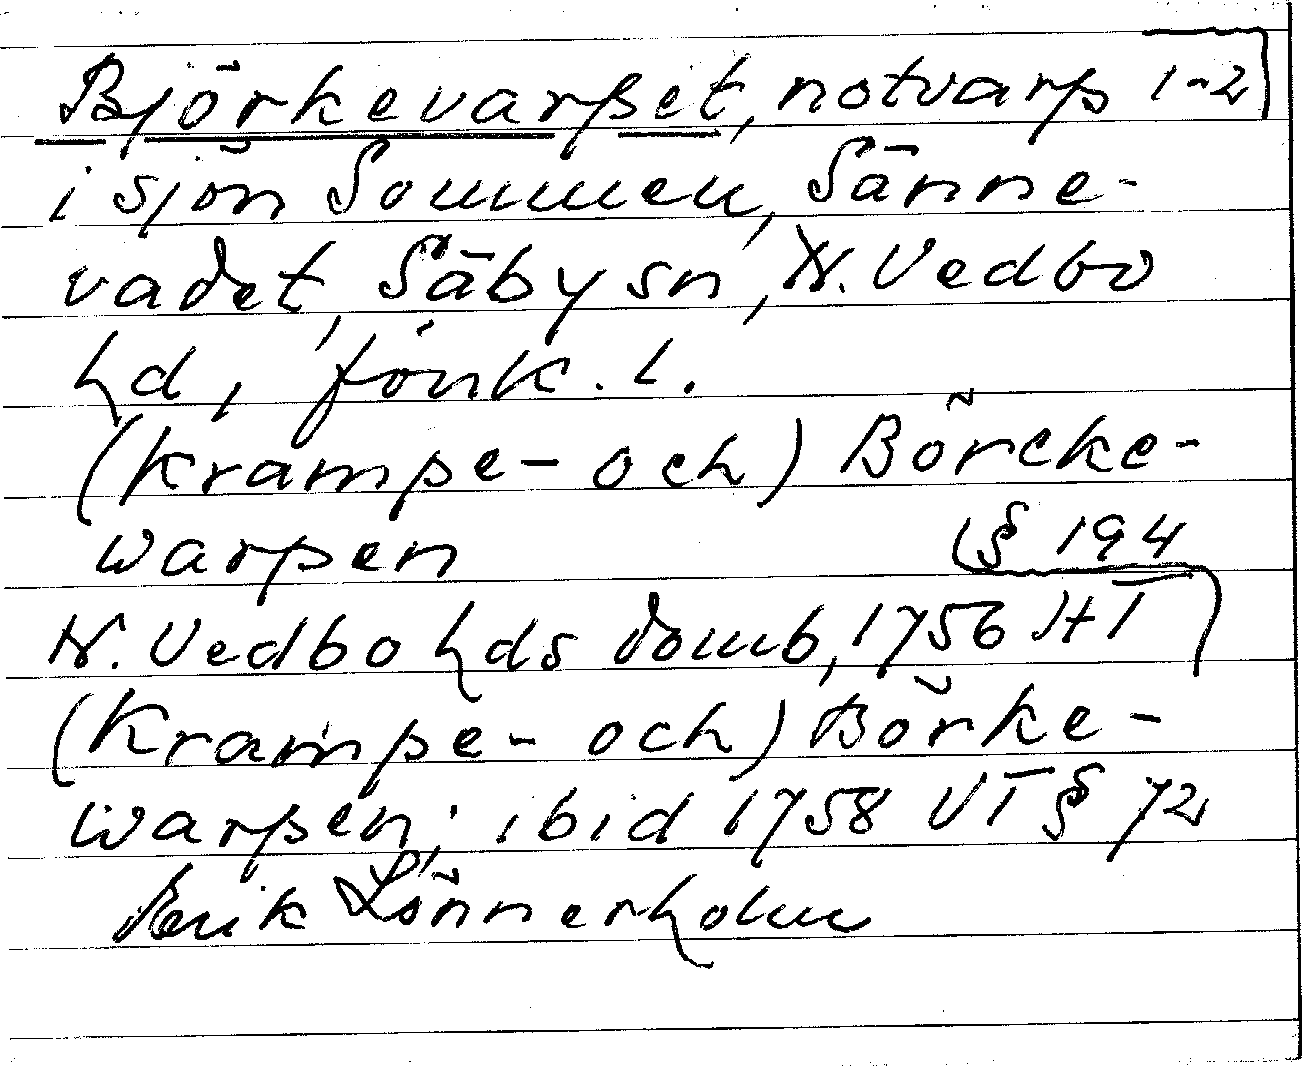 Björkevarpet, notvarp 1-2
i sjön Sommen, Sänne-
vadet, Säby sn, N. Vedbo
hd, Jönk. l.
(Krampe- och) Börcke-
warpen § 194
N. Vedbo hds domb, 1756 HT
(Krampe- och) Börke-
warpen; ibid 1758 VT § 72
Erik Lönnerholm